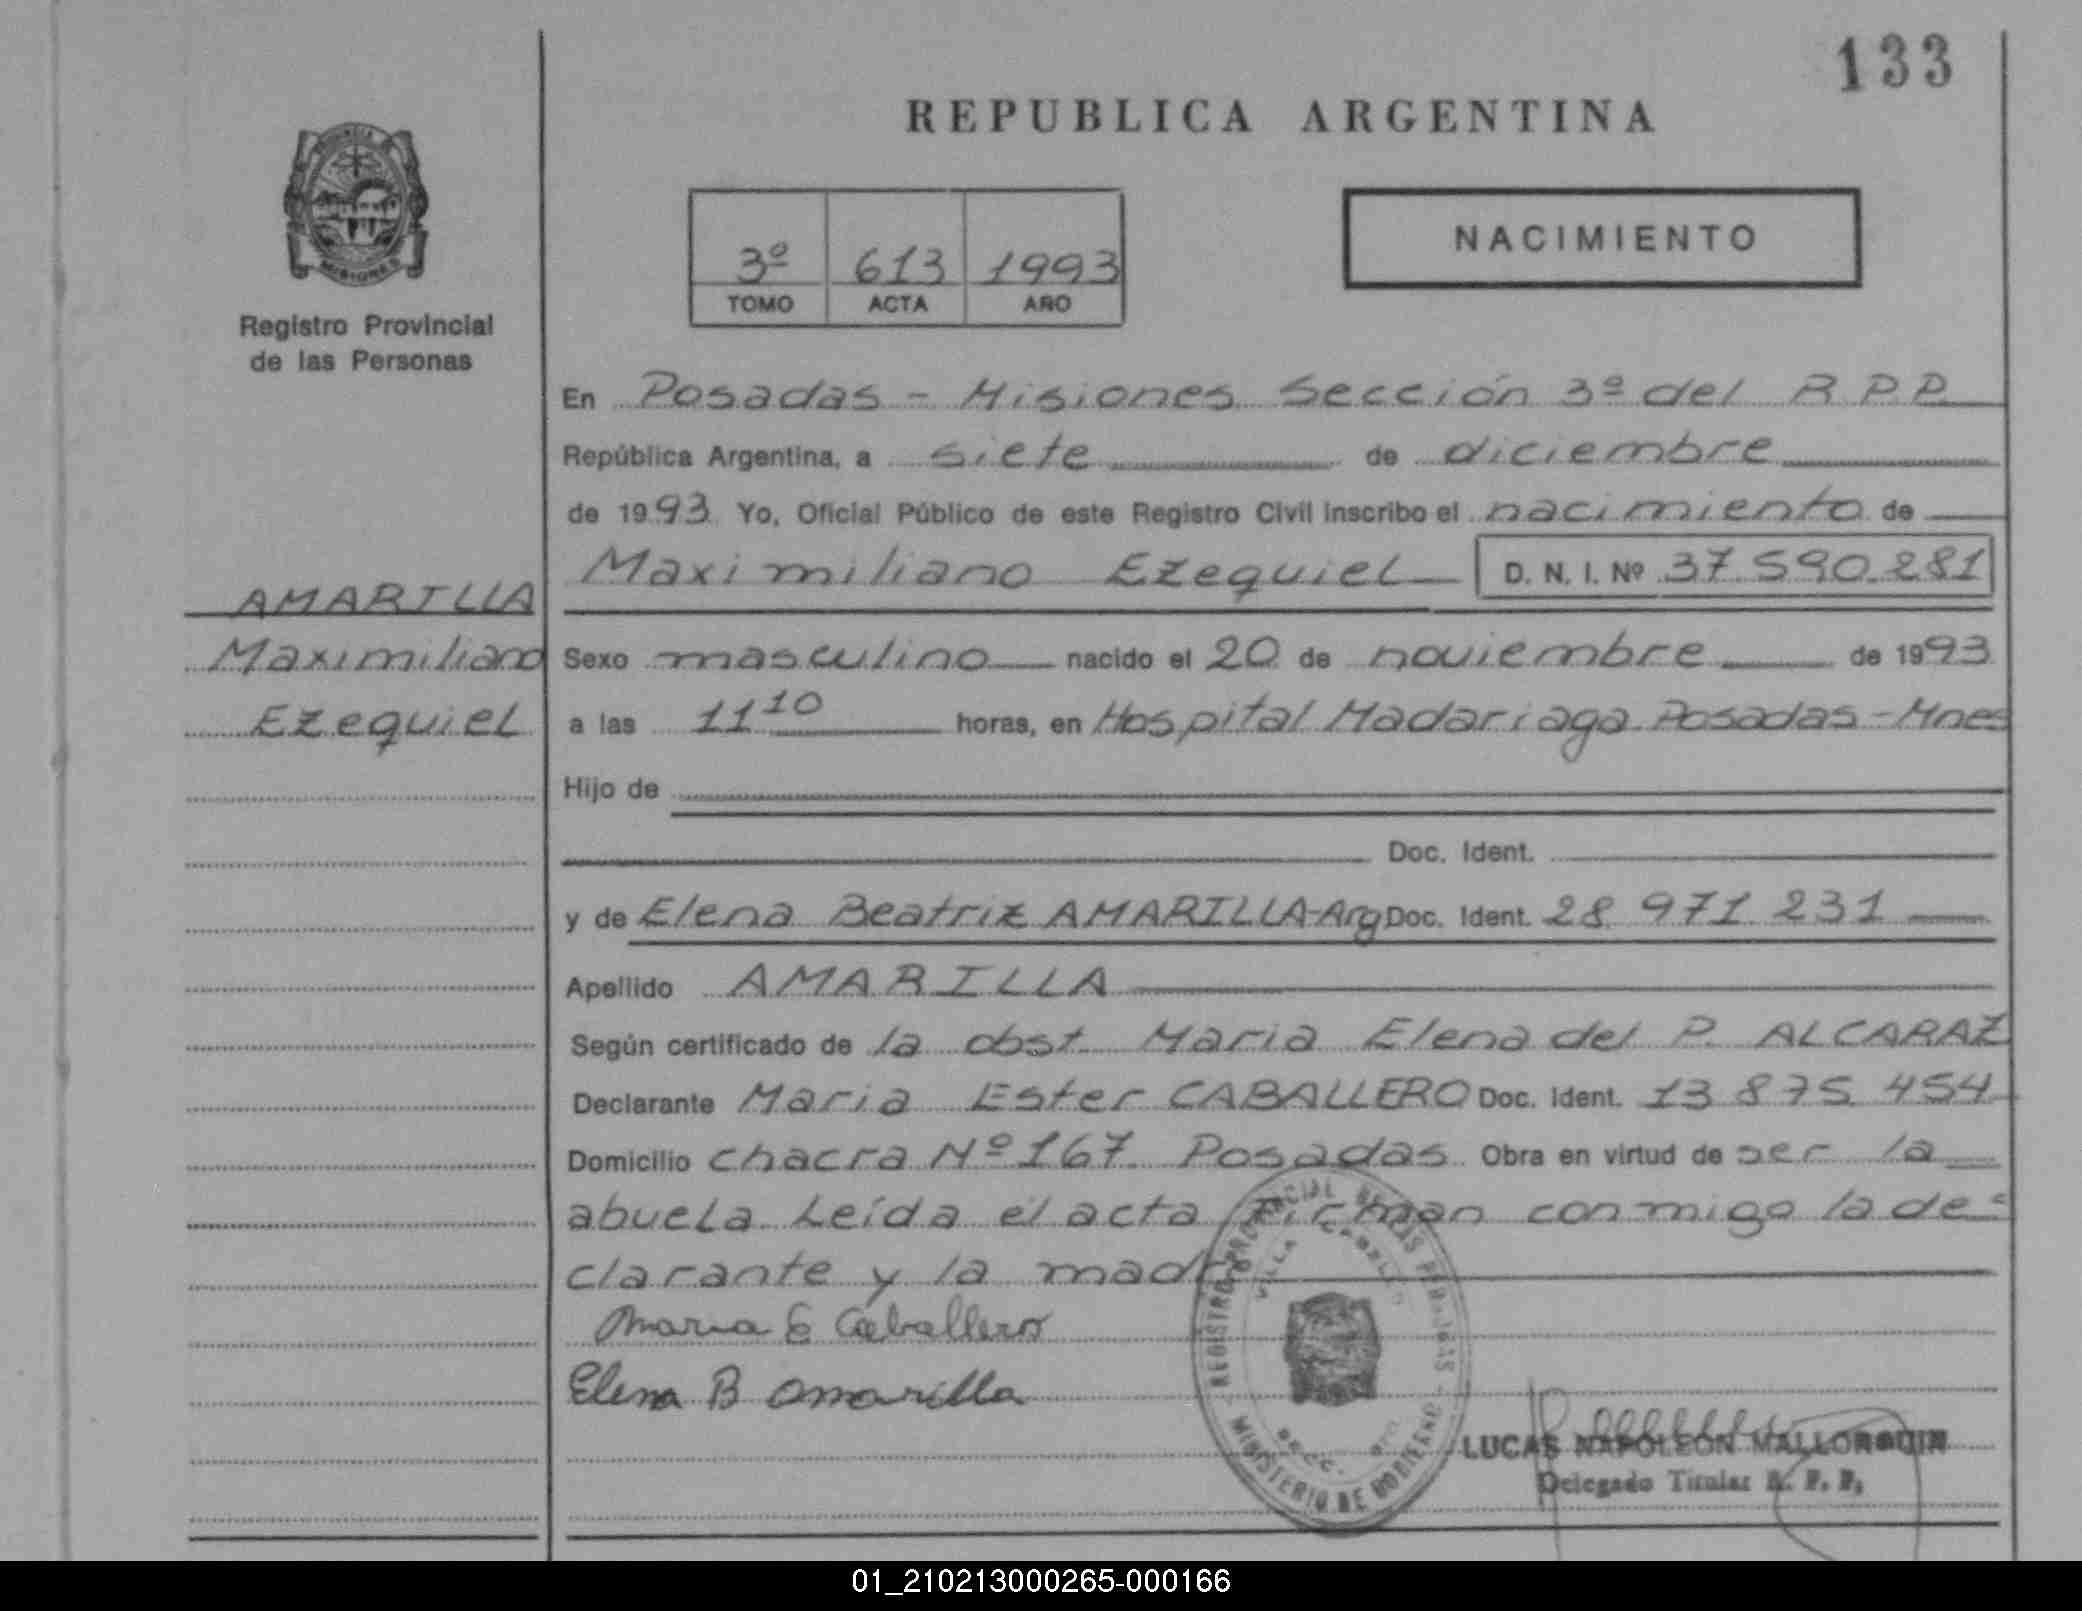 133
REPUBLICA ARGENTINA
3º 613 1993
TOMO ACTA AÑO
NACIMIENTO
MISIONES
Registro Provincial
de las Personas
En Posadas - Misiones Sección 3ª del R P P
República Argentina, a siete de diciembre
de 1993 Yo, Oficial Público de este Registro Civil inscribo el nacimiento de
Maximiliano Ezequiel D. N. I. Nº 37 590 281
AMARILLA
Maximiliano
Ezequiel
Sexo masculino nacido el 20 de noviembre de 1993
a las 11 10 horas, en Hospital Madariaga Posadas - Mnes
Hijo de
Doc. Ident.
y de Elena Beatriz AMARILLA-Arg Doc. Ident. 28 971 231
Apellido AMARILLA
Según certificado de la obst Maria Elena del P. ALCARAZ
Declarante Maria Ester CABALLERO Doc. Ident. 13 875 454
Domicilio chacra Nº 167 Posadas Obra en virtud de ser la
abuela Leída el acta firman conmigo la de-
clarante y la madre
Maria E Caballero
Elena B Amarilla
REGISTRO PROVINCIAL DE LAS PERSONAS
VILLA CABELLO
MINISTERIO DE GOBIERNO
LUCAS NAPOLEON MALLORQUIN
Delegado Titular R. P. P.
01_210213000265-000166